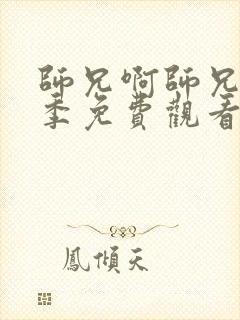 師兄啊師兄
季免費觀看
鳳傾天